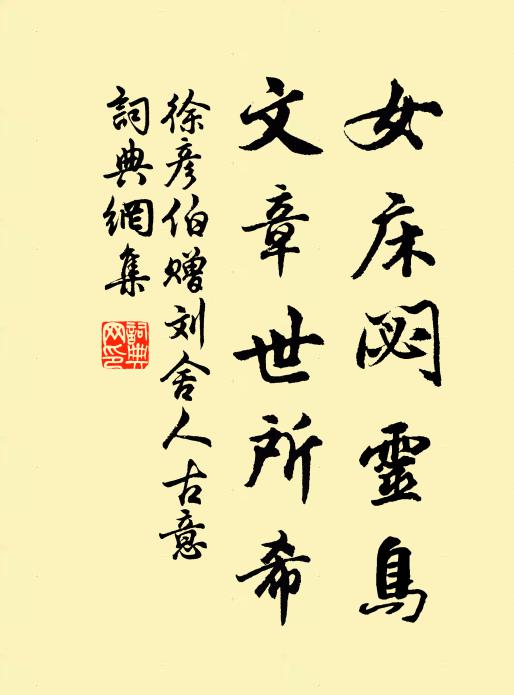 女床閟靈鳥
文章世所希
徐彦伯赠刘舍人古意
詞典網集
詞典网印